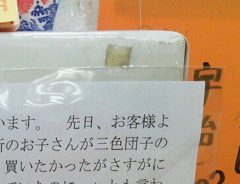 います。　先日、お客様よ
所のお子さんが三色団子の
買いたかったがさすがに
宇治